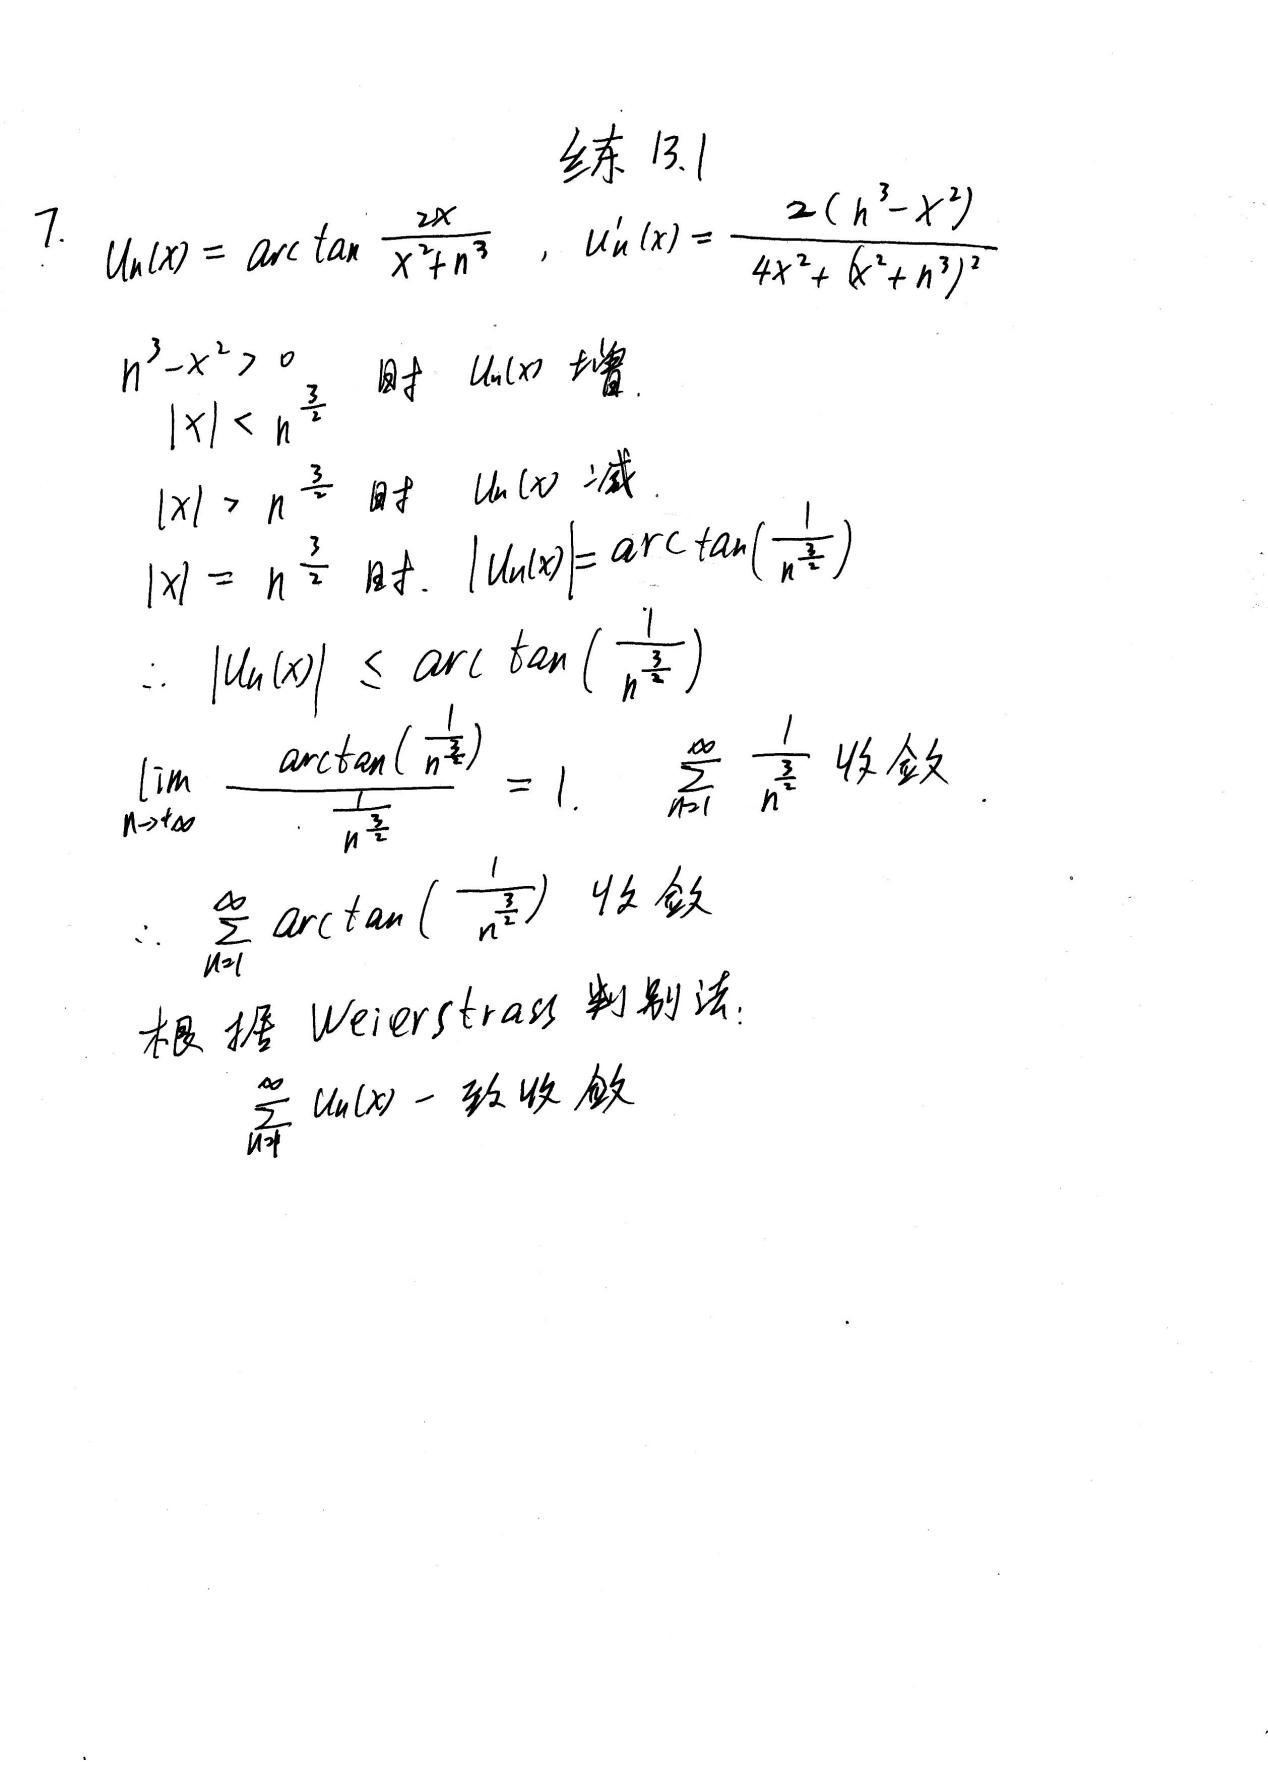 练 13.1
7. Un(x) = arc tan 2x/(x²+n³) , U'n(x) = 2(n³-x²)/(4x²+(x²+n³)²)
n³-x²>0 时 Un(x) 增.
|x| < n^(3/2)
|x| > n^(3/2) 时 Un(x) 减.
|x| = n^(3/2) 时. |Un(x)| = arc tan(1/n^(3/2))
∴ |Un(x)| ≤ arc tan(1/n^(3/2))
lim n→+∞ arctan(1/n^(3/2))/(1/n^(3/2)) = 1. ∑_{n=1}^∞ 1/n^(3/2) 收敛.
∴ ∑_{n=1}^∞ arctan(1/n^(3/2)) 收敛
根据 Weierstrass 判别法:
∑_{n=1}^∞ Un(x) 一致收敛